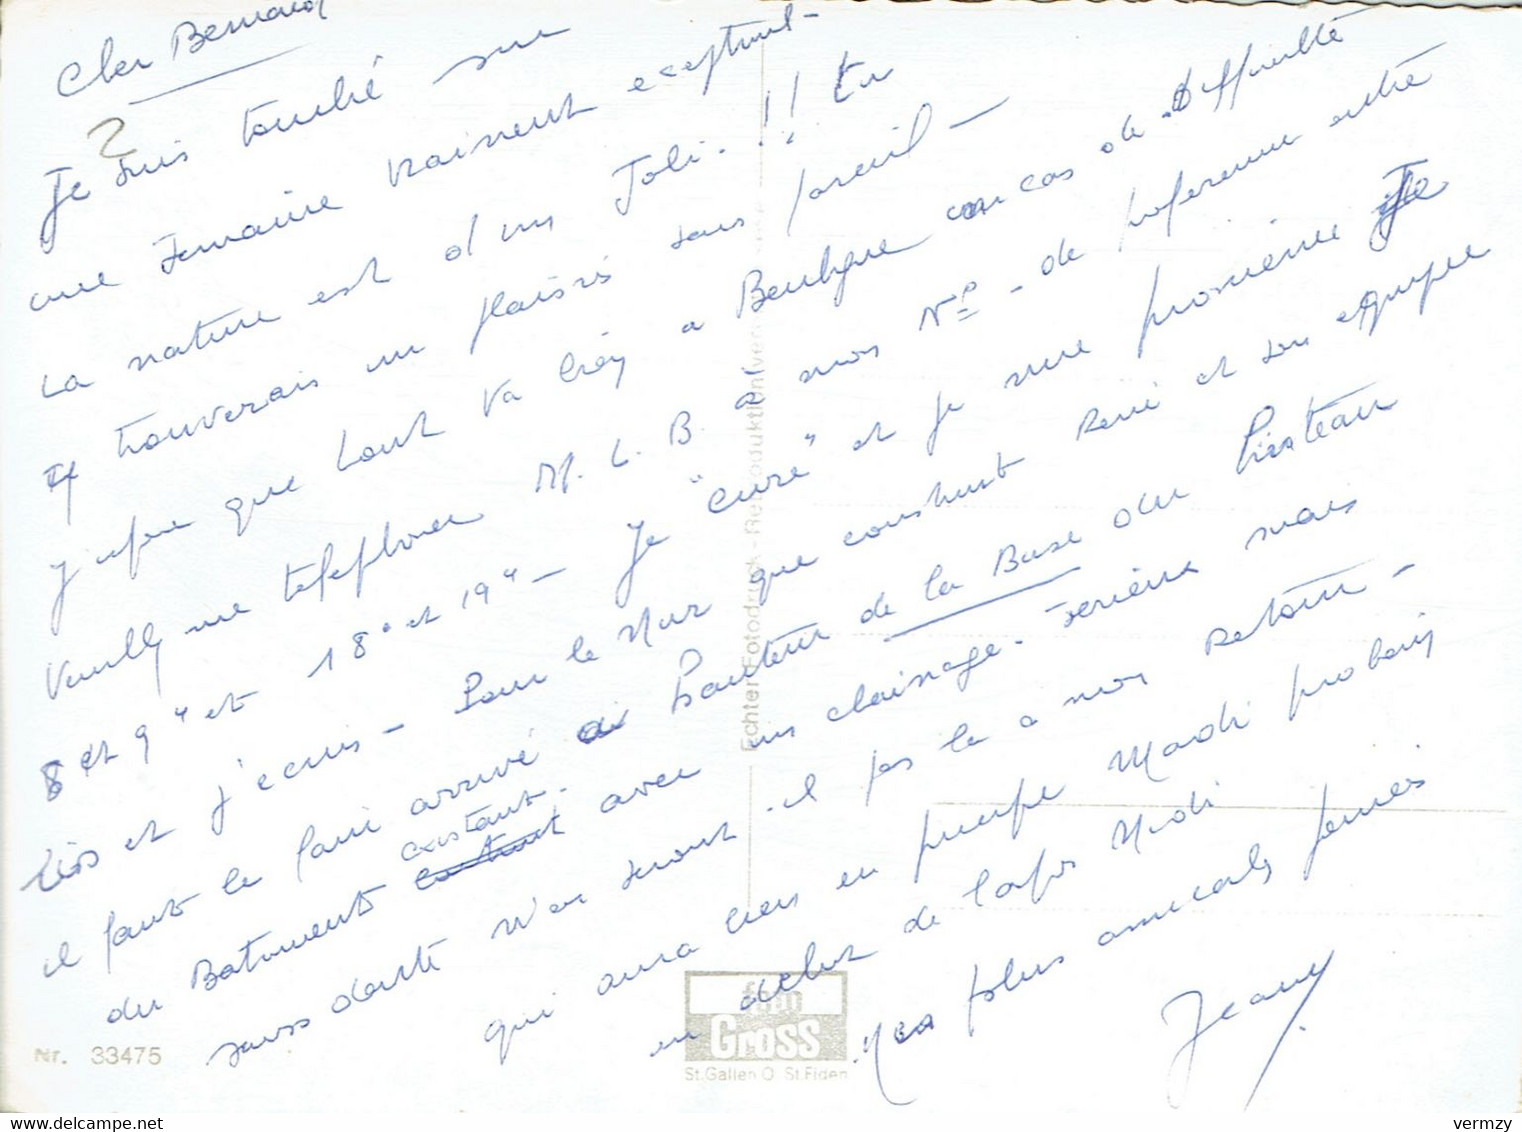 Cher Bernard
Je suis tombé sur
une semaine vraiment exceptionnel-
La nature est d'un Joli - !! tu
y trouverais un plaisir sans pareil -
J'espère que tout va bien a Boulogne en cas de Difficulté
Veuillez me telephoner M. L. B. a mon N° - de preference entre
8 et 9 " et 18 ° et 19 " - Je "cure" et je me promène Je
lis et j'ecris - Pour le Mur que construit René et son equipe
il faut le faire arrivé hauteur de la Base du
existant.
du Batiment avec un clairage. derière mais
sans doute n'en seront-il pas la a mon Retour -
qui aura lieu en principe Mardi prochain
en debut de l'après Midi
Mes plus amicales pensées
Jeany
Nr. 33475
Echter Fotodruck - Reproduktion
foto
Gross
St. Gallen O St. Fiden
vermzy
www.delcampe.net